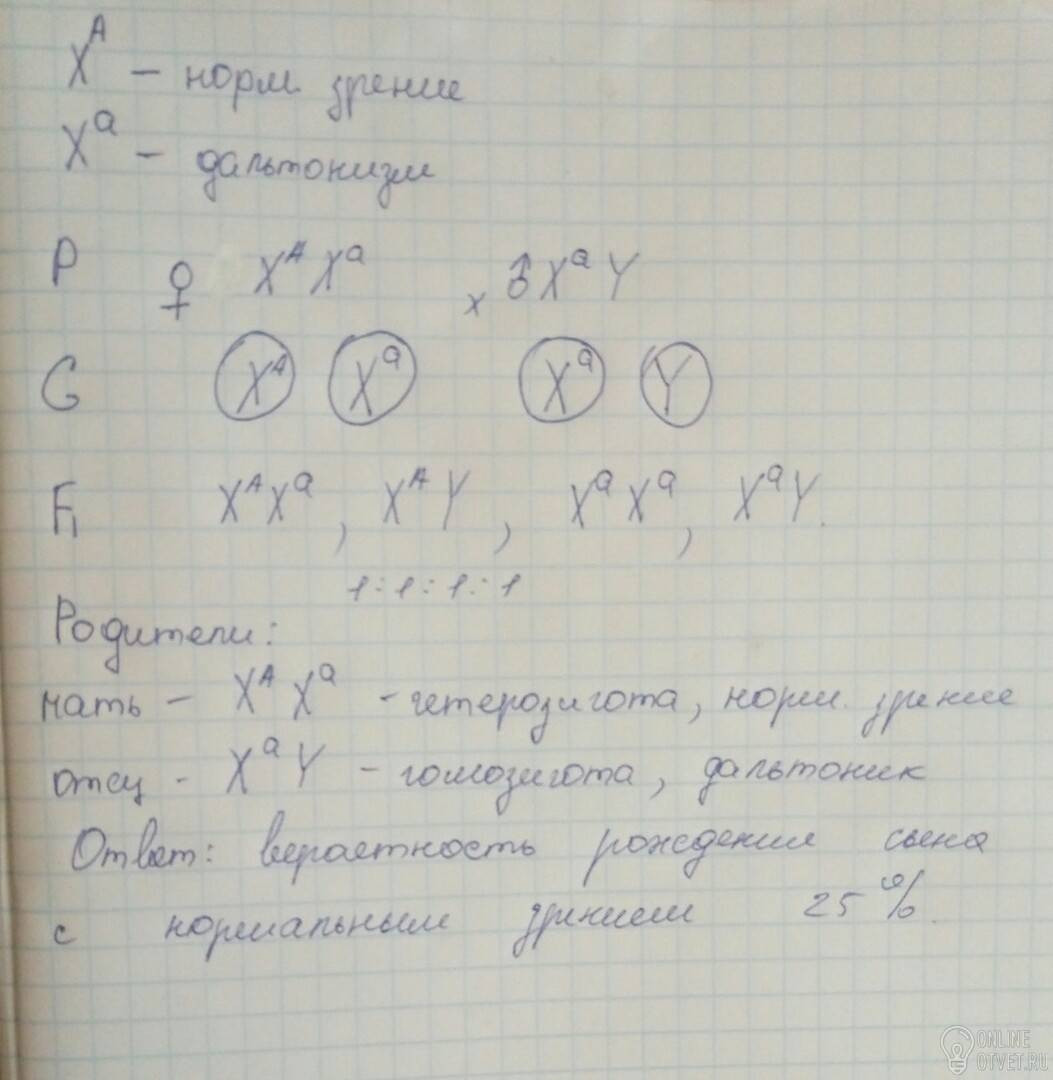 X^A – норм. зрение
X^a – дальтонизм
P ♀ X^A X^a x ♂ X^a Y
G X^A X^a X^a Y
F₁ X^A X^a, X^A Y, X^a X^a, X^a Y.
1:1:1:1
Родители:
мать – X^A X^a – гетерозигота, норм. зрение
отец – X^a Y – гомозигота, дальтоник
Ответ: вероятность рождения сына
с нормальным зрением 25%.
ONLINE
OTVET.RU